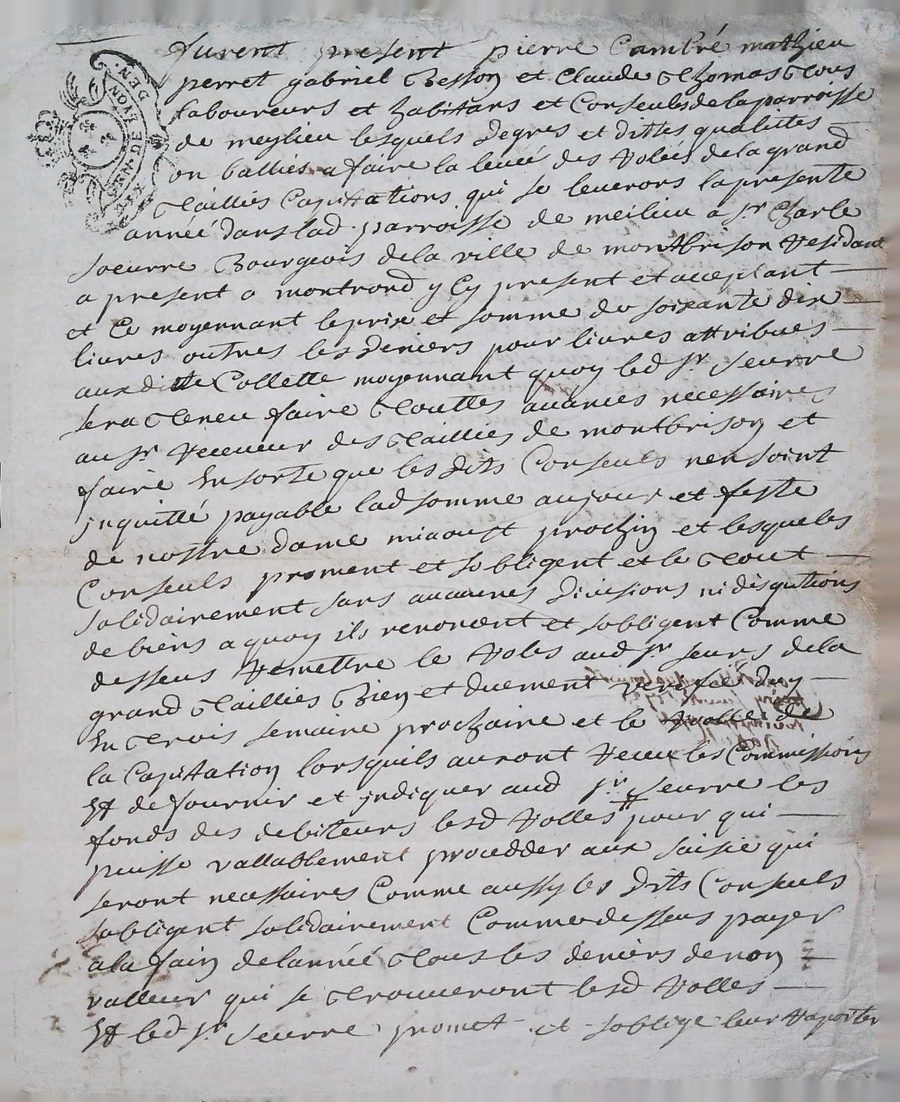 furent present pierre Cambré mathieu
perret gabriel Besson et Claude Thomas Tous
laboureurs et habitans et Conseuls de la parroisse
de meylieu lesquels degres et dittes qualittes
on balliés a faire la levée des Rolés de la grand
Tailliés Capitations qui se leverons la presente
année dans lad parroisse de meilieu a sr Charle
soeurre Bourgeois de la ville de montbrison Residant
a present a montrond y Cy present et acceptant
et Ce moyennant le prix et somme de soixante dix
livres outres les deniers pour livres attribues
aux ditte Collette moyennant quoy led sr seurre
sera Teneu faire Touttes avances necessaires
au sr Receveur des Tailliés de montbrison et
faire En sorte que les dits Conseuls nen soint
jnquitté payable lad somme au jour et feste
de nostre dame miaoust prochin et lesqueles
Conseuls proment et sobligent et le Tout
solidairement sans aucunes divisions ni disqutions
de biens a quoy ils renoncent et sobligent Comme
dessus Remettre le Roles aud sr seurs de la
grand Tailliés Bien et duement verifié dhuy
En Trois semaine prochaine et le Rolle de
la Capitation lorsquils auront Receu les Commissions
Et de fournir et jndiquer aud sr seurre les
fonds des debiteurs lesd Rolles pour qui
puisse vallablement procedder aux saisie qui
seront necessaires Comme aussy les dits Conseuls
sobligent solidairement Comme dessus payer
a la fain de lannée Tous les deniers de non
valleur qui se Trouveront lesd Rolles
Et led sr seurre promet et soblige leur Raporter
GEN. DE LYON